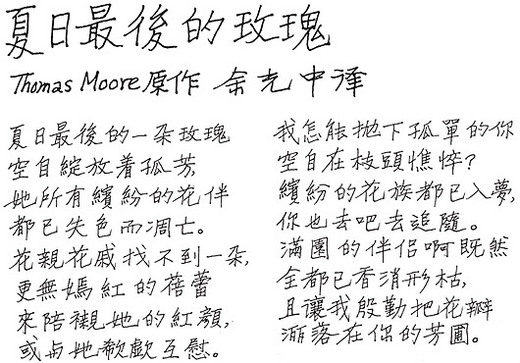 夏日最後的玫瑰
Thomas Moore原作 余光中譯
夏日最後的一朵玫瑰
空自綻放着孤芳,
她所有繽紛的花伴
都已失色而凋亡。
花親花戚找不到一朵,
更無嫣紅的蓓蕾
來陪襯她的紅顏,
或与她欷歔互慰。
我怎能拋下孤單的你
空自在枝頭憔悴?
繽紛的花族都已入夢,
你也去吧去追隨。
滿園的伴侶啊既然
全都已香消形枯,
且讓我殷勤把花瓣
灑落在你的芳圃。